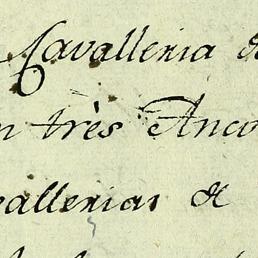 Cavalleria &
n três Anco
vallerias &